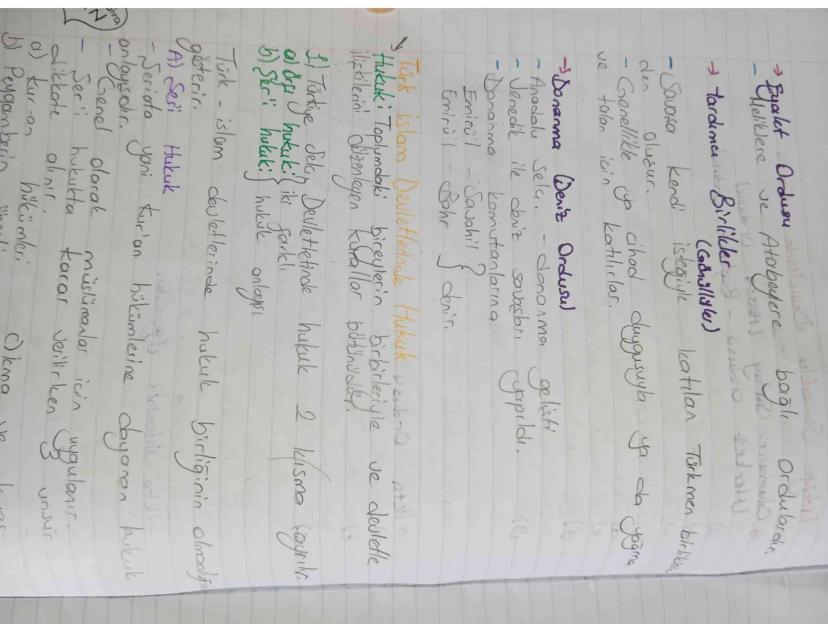 → Eyalet Ordusu
- Meliklere ve Atabeylere bağlı ordulardır.
→ Yardımcı Birlikler
(Gönüllüler)
- Savaşa kendi isteğiyle katılan Türkmen
den oluşur.
- Genellikle ya cihad duygusuyla ya da yağma
ve talan için katılırlar.
→ Donanma (Deniz Ordusu)
- Anadolu Selç. - donanma gelişti
- Venedik ile deniz savaşları yapıldı.
- Donanma komutanlarına
Emirül - Savahil } denir.
Emirül - Bahr
Türk İslam Devletlerinde Hukuk
Hukuk: Toplumdaki bireylerin birbirleriyle ve devletle
ilişkilerini düzenleyen kurallar bütünüdür.
1) Türkiye Selç. Devletletinde hukuk 2 kısma ayrılır.
a) örfi hukuk } iki farklı
b) Şer'i hukuk } hukuk anlayışı
Türk - islam devletlerinde hukuk birliğinin olmadığı
gösterir.
A) Şer'i Hukuk
- Şeriata yani kur'an hükümlerine dayanan hukuk
anlayışıdır.
- Genel olarak müslümanlar için uygulanır.
- Şer'i hukukta karar verilirken unsur
dikkate alınır.
a) kur-an hükümleri
b) Peygamberin